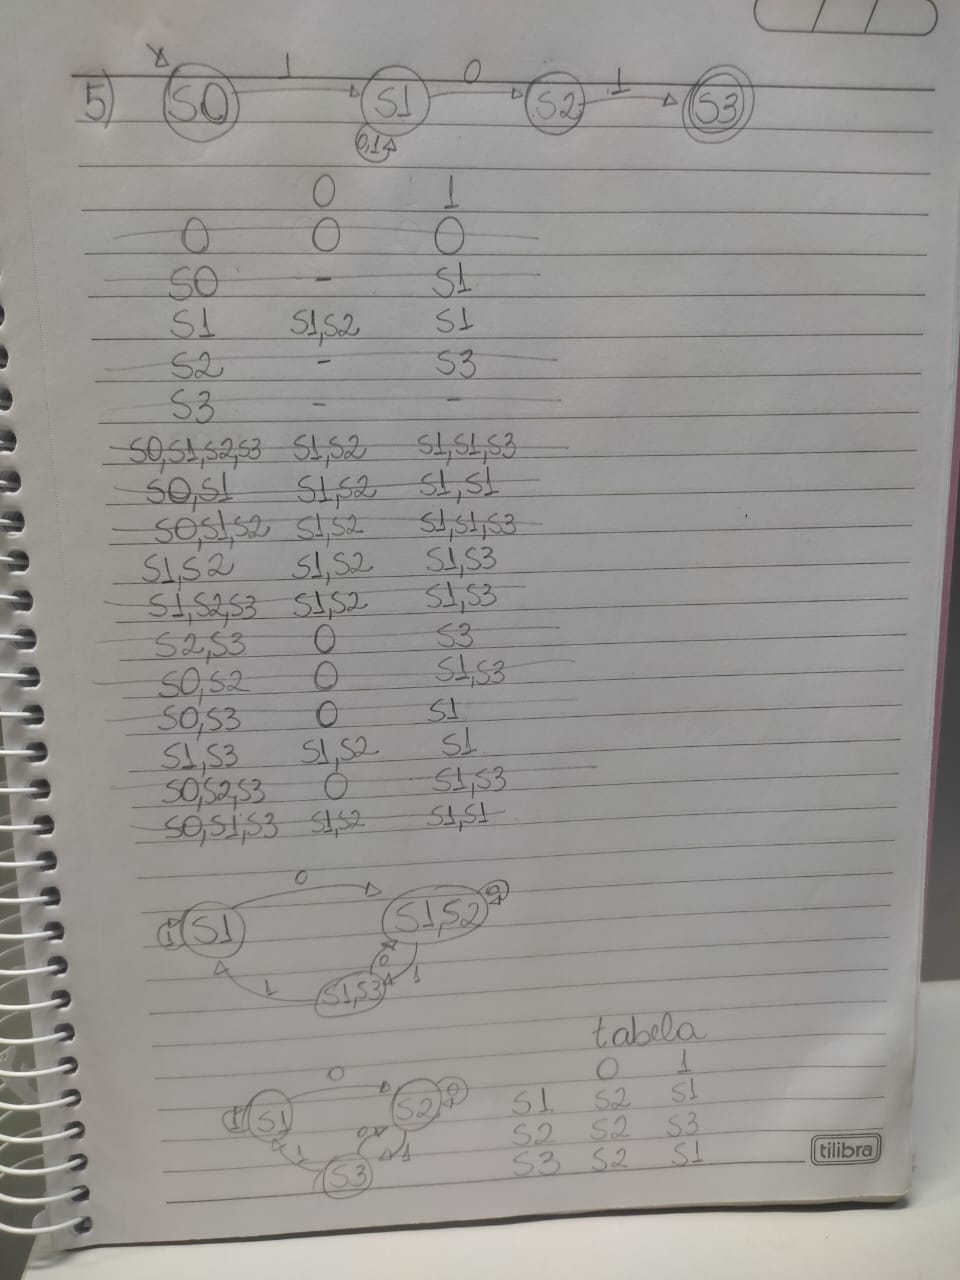 1 0 1
5) S0 S1 S2 S3
0,1
0 1
0 0 0
S0 - S1
S1 S1,S2 S1
S2 - S3
S3 - -
S0,S1,S2,S3 S1,S2 S1,S1,S3
S0,S1 S1,S2 S1,S1
S0,S1,S2 S1,S2 S1,S1,S3
S1,S2 S1,S2 S1,S3
S1,S2,S3 S1,S2 S1,S3
S2,S3 0 S3
S0,S2 0 S1,S3
S0,S3 0 S1
S1,S3 S1,S2 S1
S0,S2,S3 0 S1,S3
S0,S1,S3 S1,S2 S1,S1
0 0
1 S1 S1,S2
0 1
1 S1,S3
tabela
0 0 1
1 S1 S2 0 S1 S2 S1
0 1 S2 S2 S3
1 S3 S3 S2 S1
tilibra